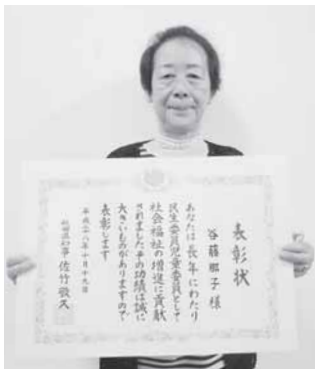 表彰状
谷藤 子様
あなたは長年にわたり
民生委員児童委員として
社会福祉の増進に貢献
されましたその功績は誠に
大きいものがありますので
表彰します
平成二八年十月十九日
秋田県知事 佐竹敬久